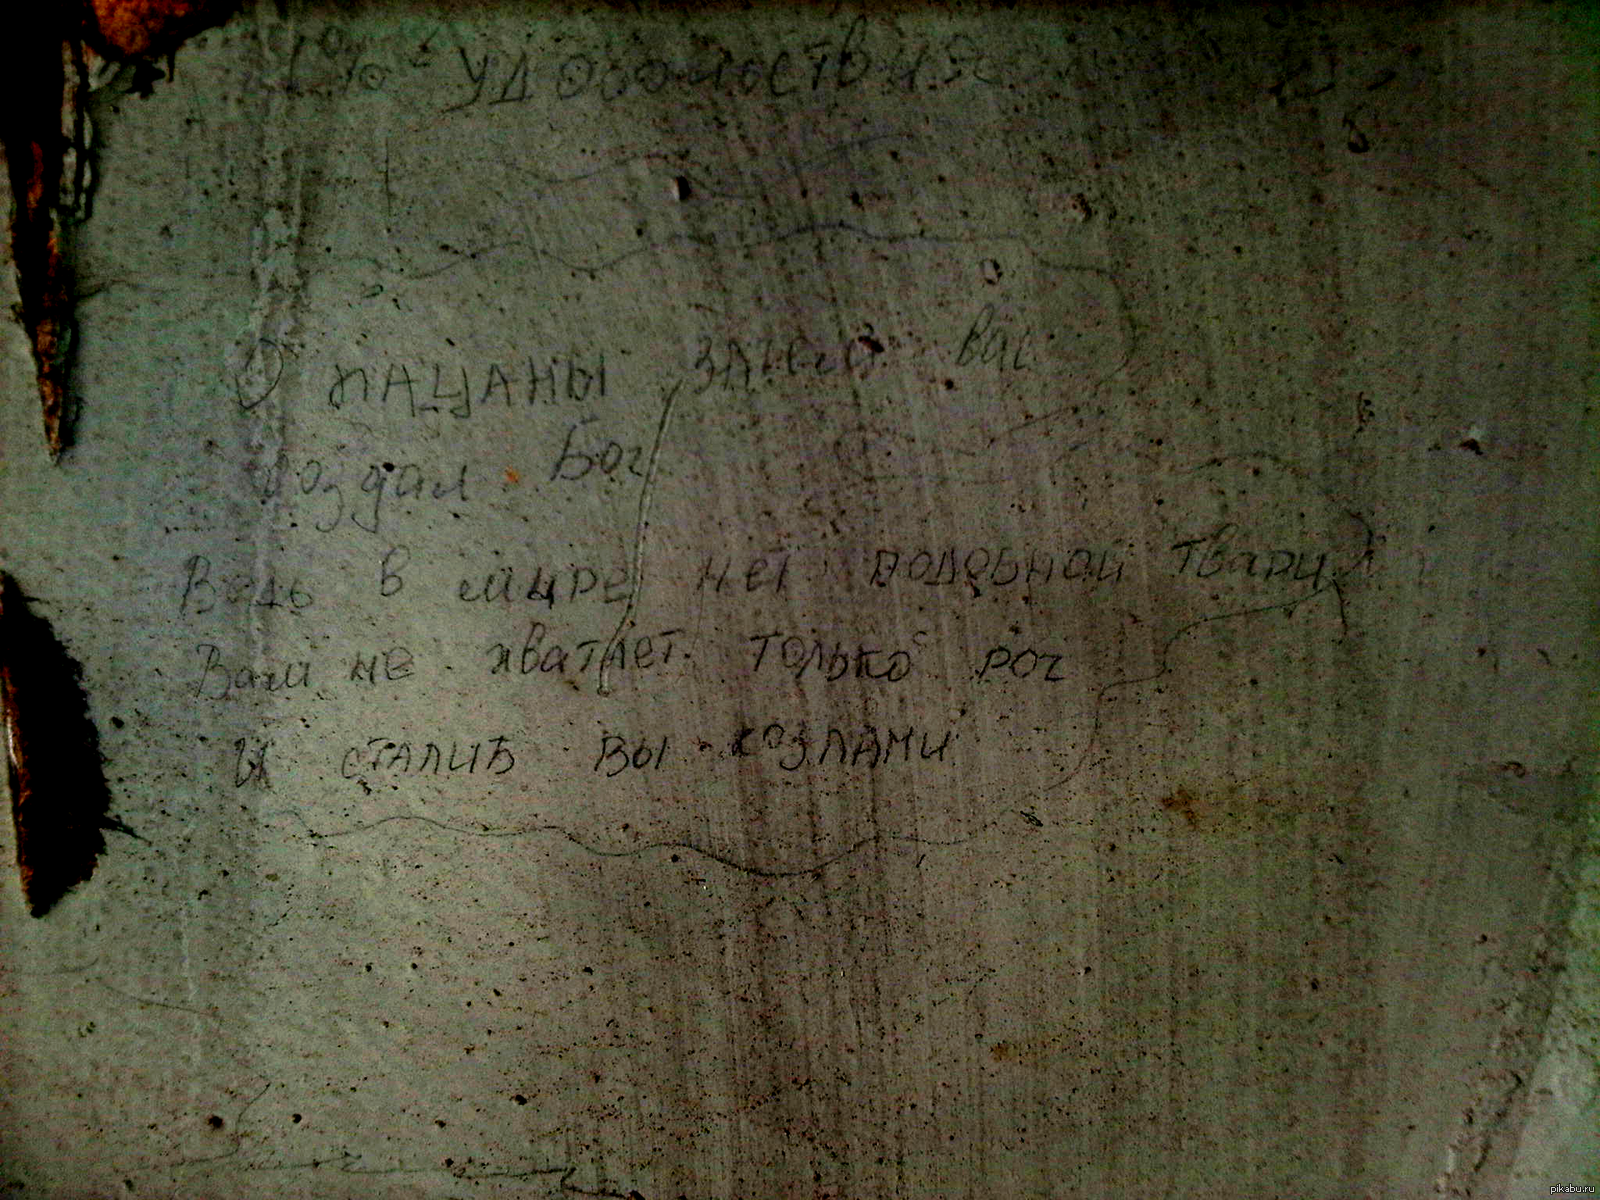 удовольствия
О ПАЦАНЫ ЗАЧЕМ Вас
создал Бог
Ведь в мире нет подобной твари
Вам не хватает только рог
И сталиб вы козлами
pikabu.ru